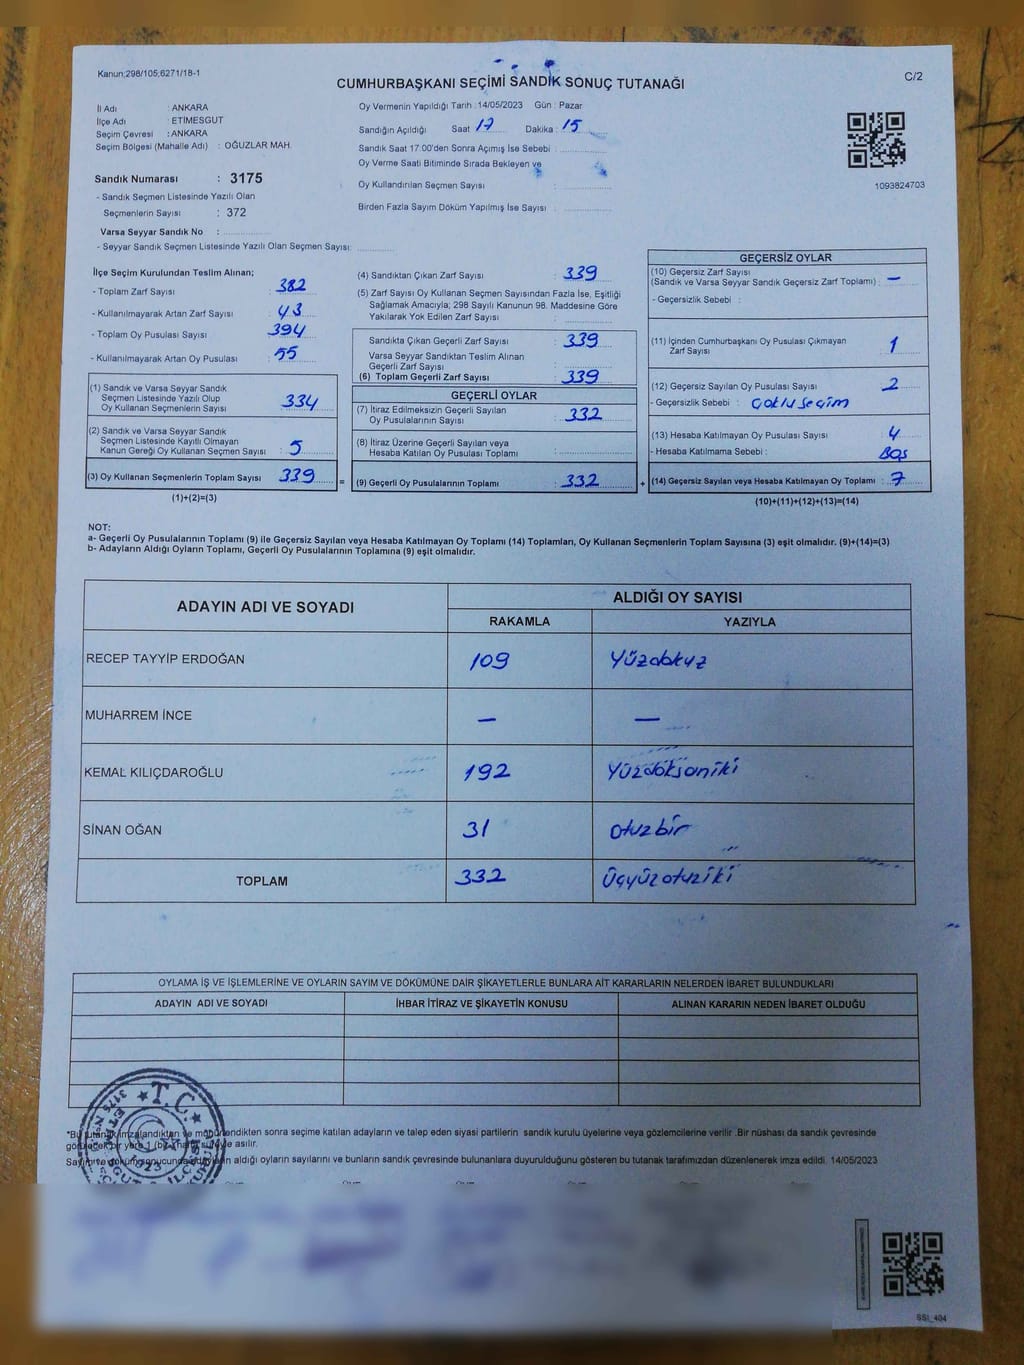 Kanun;298/105;6271/18-1
CUMHURBAŞKANI SEÇİMİ SANDIK SONUÇ TUTANAĞI
C/2
İl Adı : ANKARA
İlçe Adı : ETİMESGUT
Seçim Çevresi : ANKARA
Seçim Bölgesi (Mahalle Adı) : OĞUZLAR MAH.
Sandık Numarası : 3175
- Sandık Seçmen Listesinde Yazılı Olan
Seçmenlerin Sayısı : 372
Varsa Seyyar Sandık No :
- Seyyar Sandık Seçmen Listesinde Yazılı Olan Seçmen Sayısı:
Oy Vermenin Yapıldığı Tarih : 14/05/2023 Gün : Pazar
Sandığın Açıldığı Saat 17 Dakika : 15
Sandık Saat 17:00'den Sonra Açımış İse Sebebi :
Oy Verme Saati Bitiminde Sırada Bekleyen ve
Oy Kullandırılan Seçmen Sayısı :
Birden Fazla Sayım Döküm Yapılmış İse Sayısı :
1093824703
İlçe Seçim Kurulundan Teslim Alınan;
- Toplam Zarf Sayısı : 382
- Kullanılmayarak Artan Zarf Sayısı : 43
- Toplam Oy Pusulası Sayısı : 394
- Kullanılmayarak Artan Oy Pusulası : 55
(1) Sandık ve Varsa Seyyar Sandık
Seçmen Listesinde Yazılı Olup
Oy Kullanan Seçmenlerin Sayısı : 334
(2) Sandık ve Varsa Seyyar Sandık
Seçmen Listesinde Kayıtlı Olmayan
Kanun Gereği Oy Kullanan Seçmen Sayısı : 5
(3) Oy Kullanan Seçmenlerin Toplam Sayısı : 339 =
(1)+(2)=(3)
(4) Sandıktan Çıkan Zarf Sayısı : 339
(5) Zarf Sayısı Oy Kullanan Seçmen Sayısından Fazla İse, Eşitliği
Sağlamak Amacıyla; 298 Sayılı Kanunun 98. Maddesine Göre
Yakılarak Yok Edilen Zarf Sayısı :
Sandıkta Çıkan Geçerli Zarf Sayısı : 339
Varsa Seyyar Sandıktan Teslim Alınan
Geçerli Zarf Sayısı :
(6) Toplam Geçerli Zarf Sayısı : 339
GEÇERLİ OYLAR
(7) İtiraz Edilmeksizin Geçerli Sayılan
Oy Pusulalarının Sayısı : 332
(8) İtiraz Üzerine Geçerli Sayılan veya
Hesaba Katılan Oy Pusulası Toplamı :
(9) Geçerli Oy Pusulalarının Toplamı : 332 +
GEÇERSİZ OYLAR
(10) Geçersiz Zarf Sayısı
(Sandık ve Varsa Seyyar Sandık Geçersiz Zarf Toplamı) : —
- Geçersizlik Sebebi :
(11) İçinden Cumhurbaşkanı Oy Pusulası Çıkmayan
Zarf Sayısı : 1
(12) Geçersiz Sayılan Oy Pusulası Sayısı : 2
- Geçersizlik Sebebi : Çoklu seçim
(13) Hesaba Katılmayan Oy Pusulası Sayısı : 4
- Hesaba Katılmama Sebebi : Boş
(14) Geçersiz Sayılan veya Hesaba Katılmayan Oy Toplamı : 7
(10)+(11)+(12)+(13)=(14)
NOT:
a- Geçerli Oy Pusulalarının Toplamı (9) ile Geçersiz Sayılan veya Hesaba Katılmayan Oy Toplamı (14) Toplamları, Oy Kullanan Seçmenlerin Toplam Sayısına (3) eşit olmalıdır. (9)+(14)=(3)
b- Adayların Aldığı Oyların Toplamı, Geçerli Oy Pusulalarının Toplamına (9) eşit olmalıdır.
ADAYIN ADI VE SOYADI ALDIĞI OY SAYISI
RAKAMLA YAZIYLA
RECEP TAYYİP ERDOĞAN 109 Yüzdokuz
MUHARREM İNCE — —
KEMAL KILIÇDAROĞLU 192 Yüzdoksaniki
SİNAN OĞAN 31 otuzbir
TOPLAM 332 üçyüzotuziki
OYLAMA İŞ VE İŞLEMLERİNE VE OYLARIN SAYIM VE DÖKÜMÜNE DAİR ŞİKAYETLERLE BUNLARA AİT KARARLARIN NELERDEN İBARET BULUNDUKLARI
ADAYIN ADI VE SOYADI İHBAR İTİRAZ VE ŞİKAYETİN KONUSU ALINAN KARARIN NEDEN İBARET OLDUĞU
T.C.
"Bu tutanak imzalandıktan ve mühürlendikten sonra seçime katılan adayların ve talep eden siyasi partilerin sandık kurulu üyelerine veya gözlemcilerine verilir .Bir nüshası da sandık çevresinde
görülecek bir yere 1 (bir) hafta süreyle asılır.
Sayım ve döküm sonucunda adayların aldığı oyların sayılarını ve bunların sandık çevresinde bulunanlara duyurulduğunu gösteren bu tutanak tarafımızdan düzenlenerek imza edildi. 14/05/2023
SSI_404